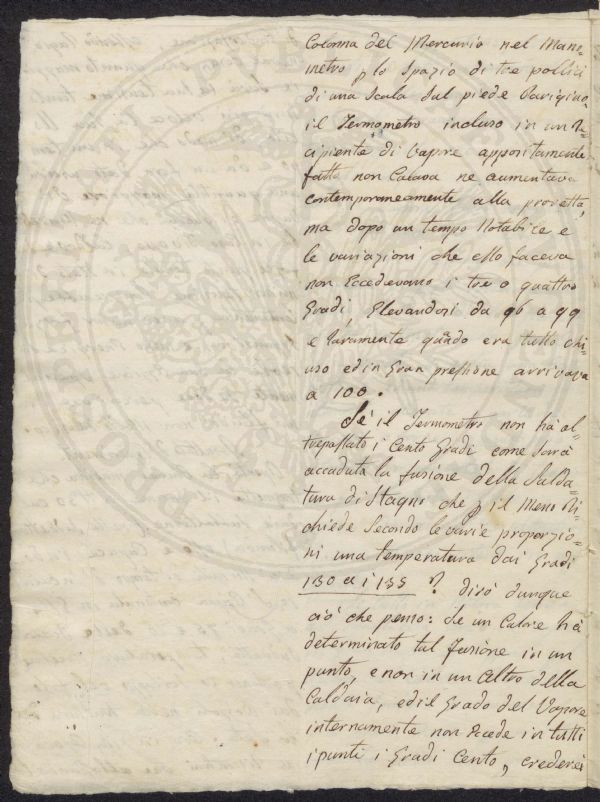 Colonna del Mercurio nel Mano=
metro p lo Spazio di tre pollici
di una Scala sul piede Parigino
il Termometro incluso in un Re
cipiente di Vapre appositamente
fatto non Calava ne aumentava
contemporaneamente alla provetta,
ma dopo un tempo Notabile e
le variazioni che esso faceva
non Eccedevano i tre o quattro
Gradi, Elevandosi da 96 a 99
e raramente quãdo era tutto chi=
uso ed in Gran pressione arrivava
a 100.
Se il Termometro non hà ol=
trepassato i Cento Gradi come sarà
accaduta la fusione della Salda=
tura di Stagno che p il Meno Ri=
chiede Secondo le varie proporzio=
ni una temperatura dai Gradi
130 a i 135 ? dirò dunque
ciò che penso: Se un Calore hà
determinato tal fusione in un
punto, e non in un Altro della
Caldaia, ed il Grado del Vapore
internamente non Ecede in tutti
i punti i Gradi Cento, crederei